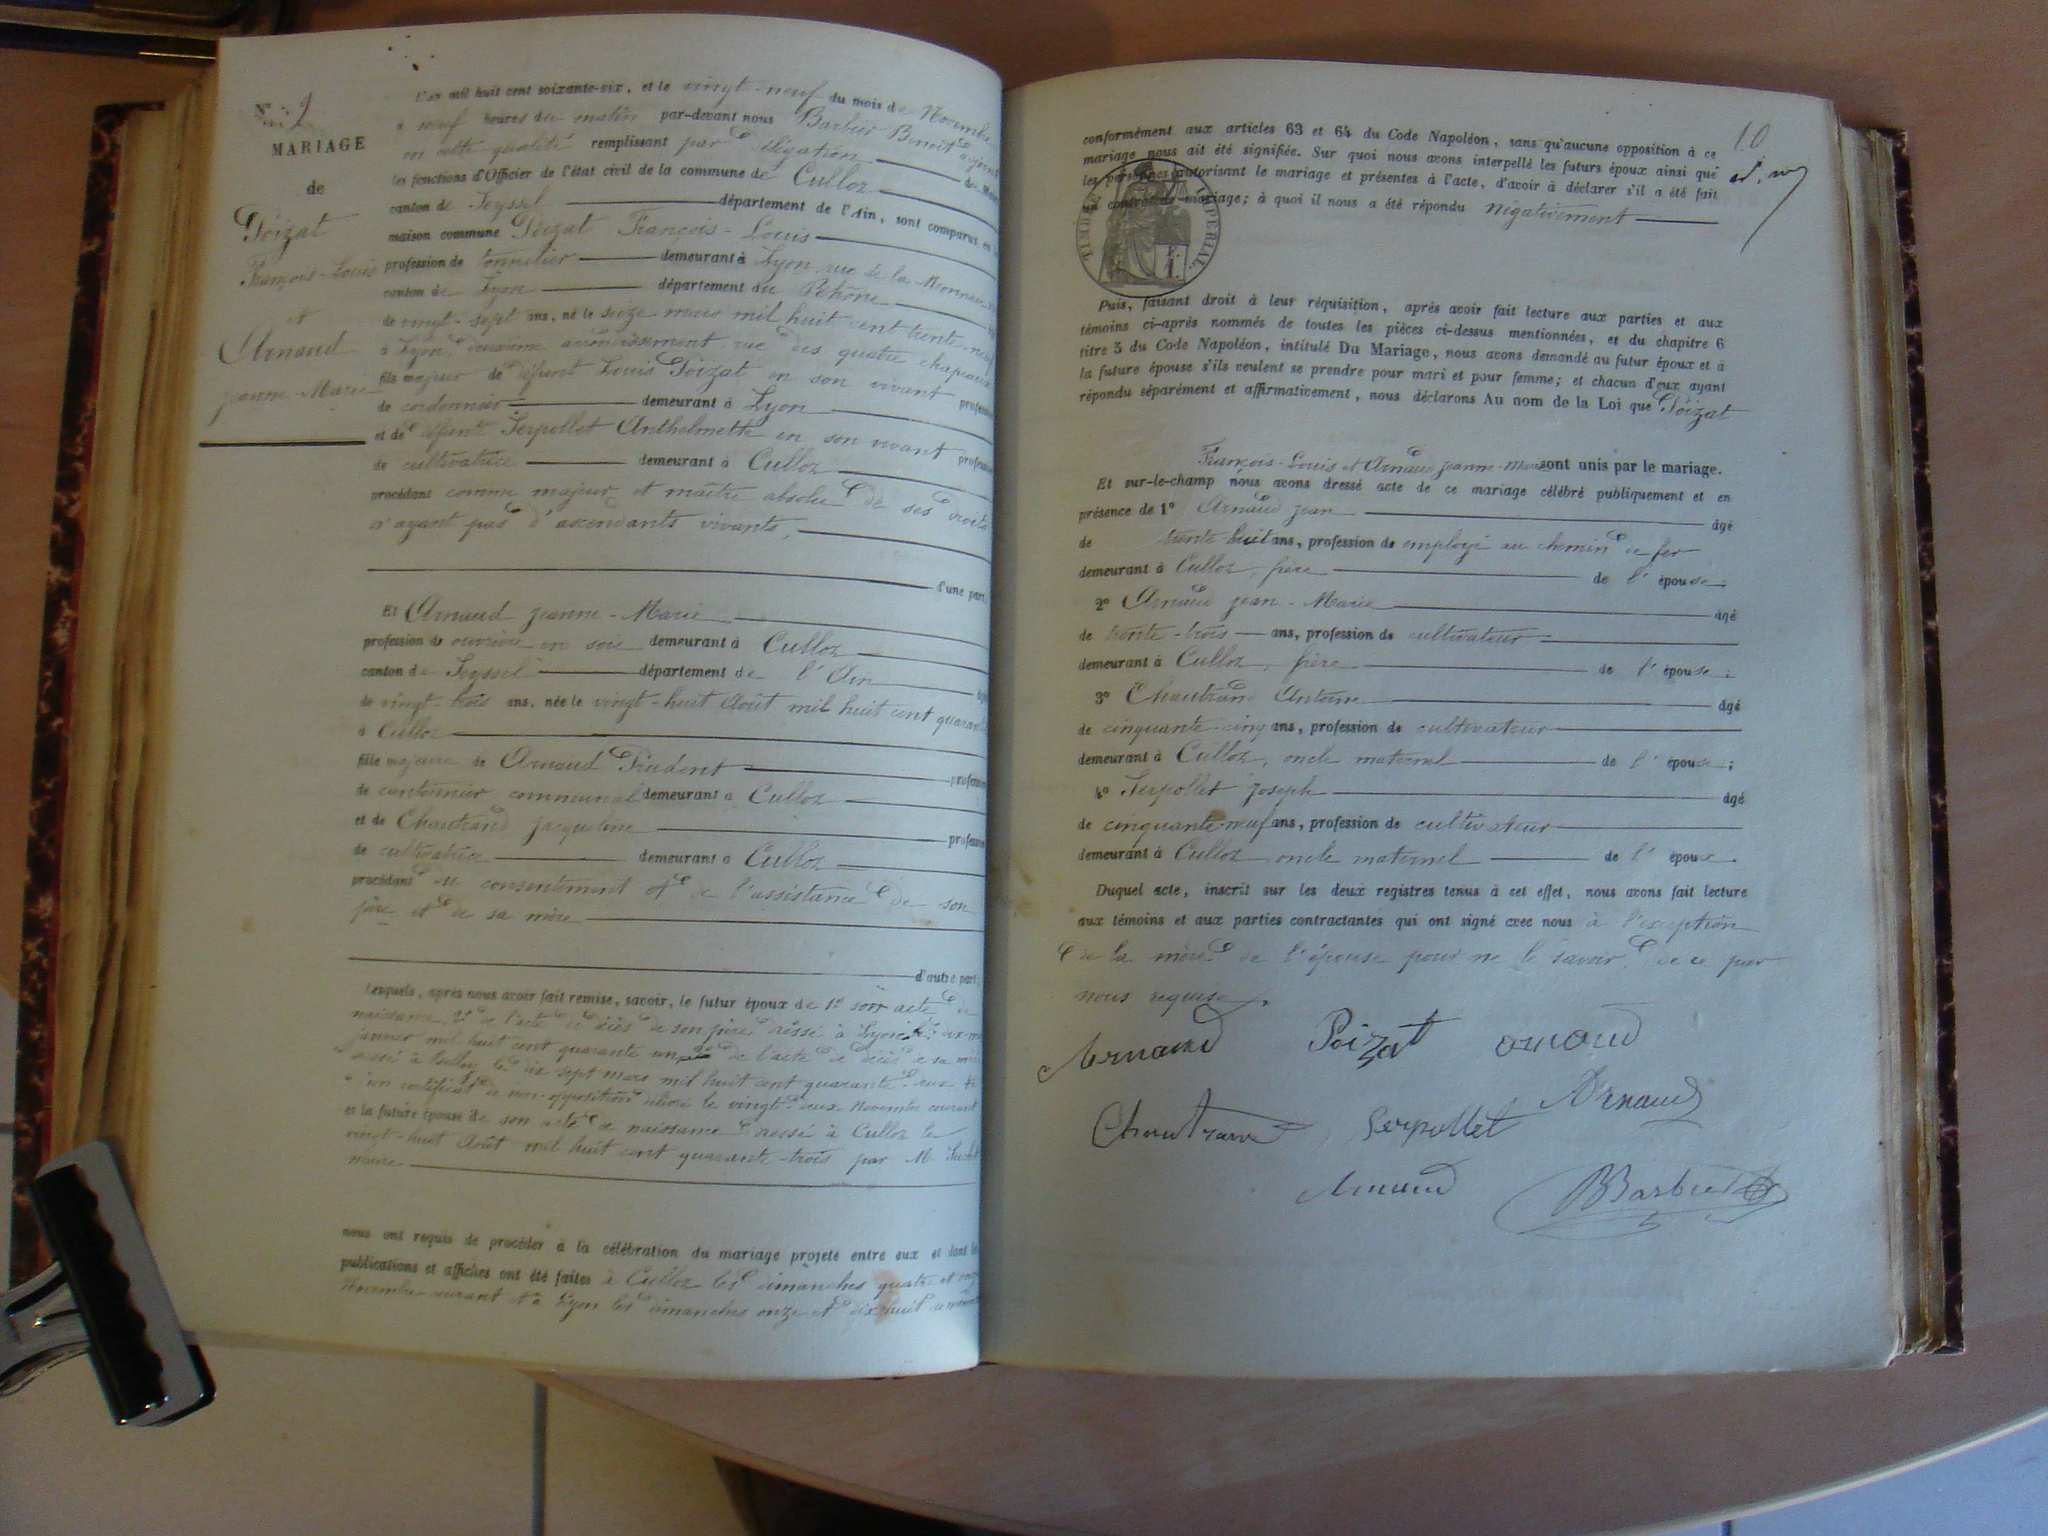 N° 9
MARIAGE
de
Poizat
François-Louis
et
Arnaud
jeanne-Marie
L'an mil huit cent soixante-six, et le vingt-neuf du mois de Novembre
à neuf heures du matin par-devant nous Barbier Benoit adjoint
en cette qualité remplissant par délégation
les fonctions d'Officier de l'état civil de la commune de Culloz
canton de Seyssel département de l'Ain, sont comparus en
maison commune Poizat François-Louis
profession de tonnelier demeurant à Lyon, rue de la Monnaie
canton de Lyon département du Rhône
de vingt-sept ans, né le seize mars mil huit cent trente-neuf
à Lyon, deuxième arrondissement, rue des quatre chapeaux
fils majeur de défunt Louis Poizat en son vivant profession
de cordonnier demeurant à Lyon
et de défunt Serpollet Anthelmette en son vivant profession
de cultivatrice demeurant à Culloz
procédant comme majeur et maître absolu de ses droits
n'ayant pas d'ascendants vivants,
d'une part,
Et Arnaud jeanne-Marie
profession de ouvrière en soie demeurant à Culloz
canton de Seyssel département de l'Ain
de vingt-trois ans, née le vingt-huit Août mil huit cent quarante
à Culloz
fille majeure de Arnaud Prudent profession
de cantonnier communal demeurant à Culloz
et de Chautrand jacqueline profession
de cultivatrice demeurant à Culloz
procédant du consentement et de l'assistance de son
père et de sa mère
d'autre part;
Lesquels, après nous avoir fait remise, savoir, le futur époux de 1° son acte de
naissance, 2° de l'acte de décès de son père dressé à Lyon le dix
janvier mil huit cent quarante un de l'acte de décès de sa mère
dressé à Culloz le dix sept mars mil huit cent quarante-deux
d'un certificat de non-opposition délivré le vingt-deux Novembre courant
et la future épouse de son acte de naissance dressé à Culloz le
vingt-huit Août mil huit cent quarante-trois par M
maire
nous ont requis de procéder à la célébration du mariage projeté entre eux et dont les
publications et affiches ont été faites à Culloz les dimanches quatre et onze
Novembre courant et à Lyon les dimanches onze et dix-huit
10
conformément aux articles 63 et 64 du Code Napoléon, sans qu'aucune opposition à ce
mariage nous ait été signifiée. Sur quoi nous avons interpellé les futurs époux ainsi que
les personnes autorisant le mariage et présentes à l'acte, d'avoir à déclarer s'il a été fait
un contrat de mariage; à quoi il nous a été répondu négativement
TIMBRE IMPERIAL
Puis, faisant droit à leur réquisition, après avoir fait lecture aux parties et aux
témoins ci-après nommés de toutes les pièces ci-dessus mentionnées, et du chapitre 6
titre 5 du Code Napoléon, intitulé Du Mariage, nous avons demandé au futur époux et à
la future épouse s'ils veulent se prendre pour mari et pour femme; et chacun d'eux ayant
répondu séparément et affirmativement, nous déclarons Au nom de la Loi que Poizat
François-Louis et Arnaud jeanne-Marie sont unis par le mariage.
Et sur-le-champ nous avons dressé acte de ce mariage célébré publiquement et en
présence de 1° Arnaud jean âgé
de trente huit ans, profession de employé au chemin de fer
demeurant à Culloz, frère de l'épouse;
2° Arnaud jean-Marie âgé
de trente-trois ans, profession de cultivateur
demeurant à Culloz, frère de l'épouse;
3° Chautrand Antoine âgé
de cinquante-cinq ans, profession de cultivateur
demeurant à Culloz, oncle maternel de l'épouse;
4° Serpollet joseph âgé
de cinquante-neuf ans, profession de cultivateur
demeurant à Culloz oncle maternel de l'époux.
Duquel acte, inscrit sur les deux registres tenus à cet effet, nous avons fait lecture
aux témoins et aux parties contractantes qui ont signé avec nous à l'exception
de la mère de l'épouse pour ne le savoir de ce par
nous requise.
Arnaud Poizat arnaud
Arnaud
Chautrand Serpollet
Arnaud BBarbier